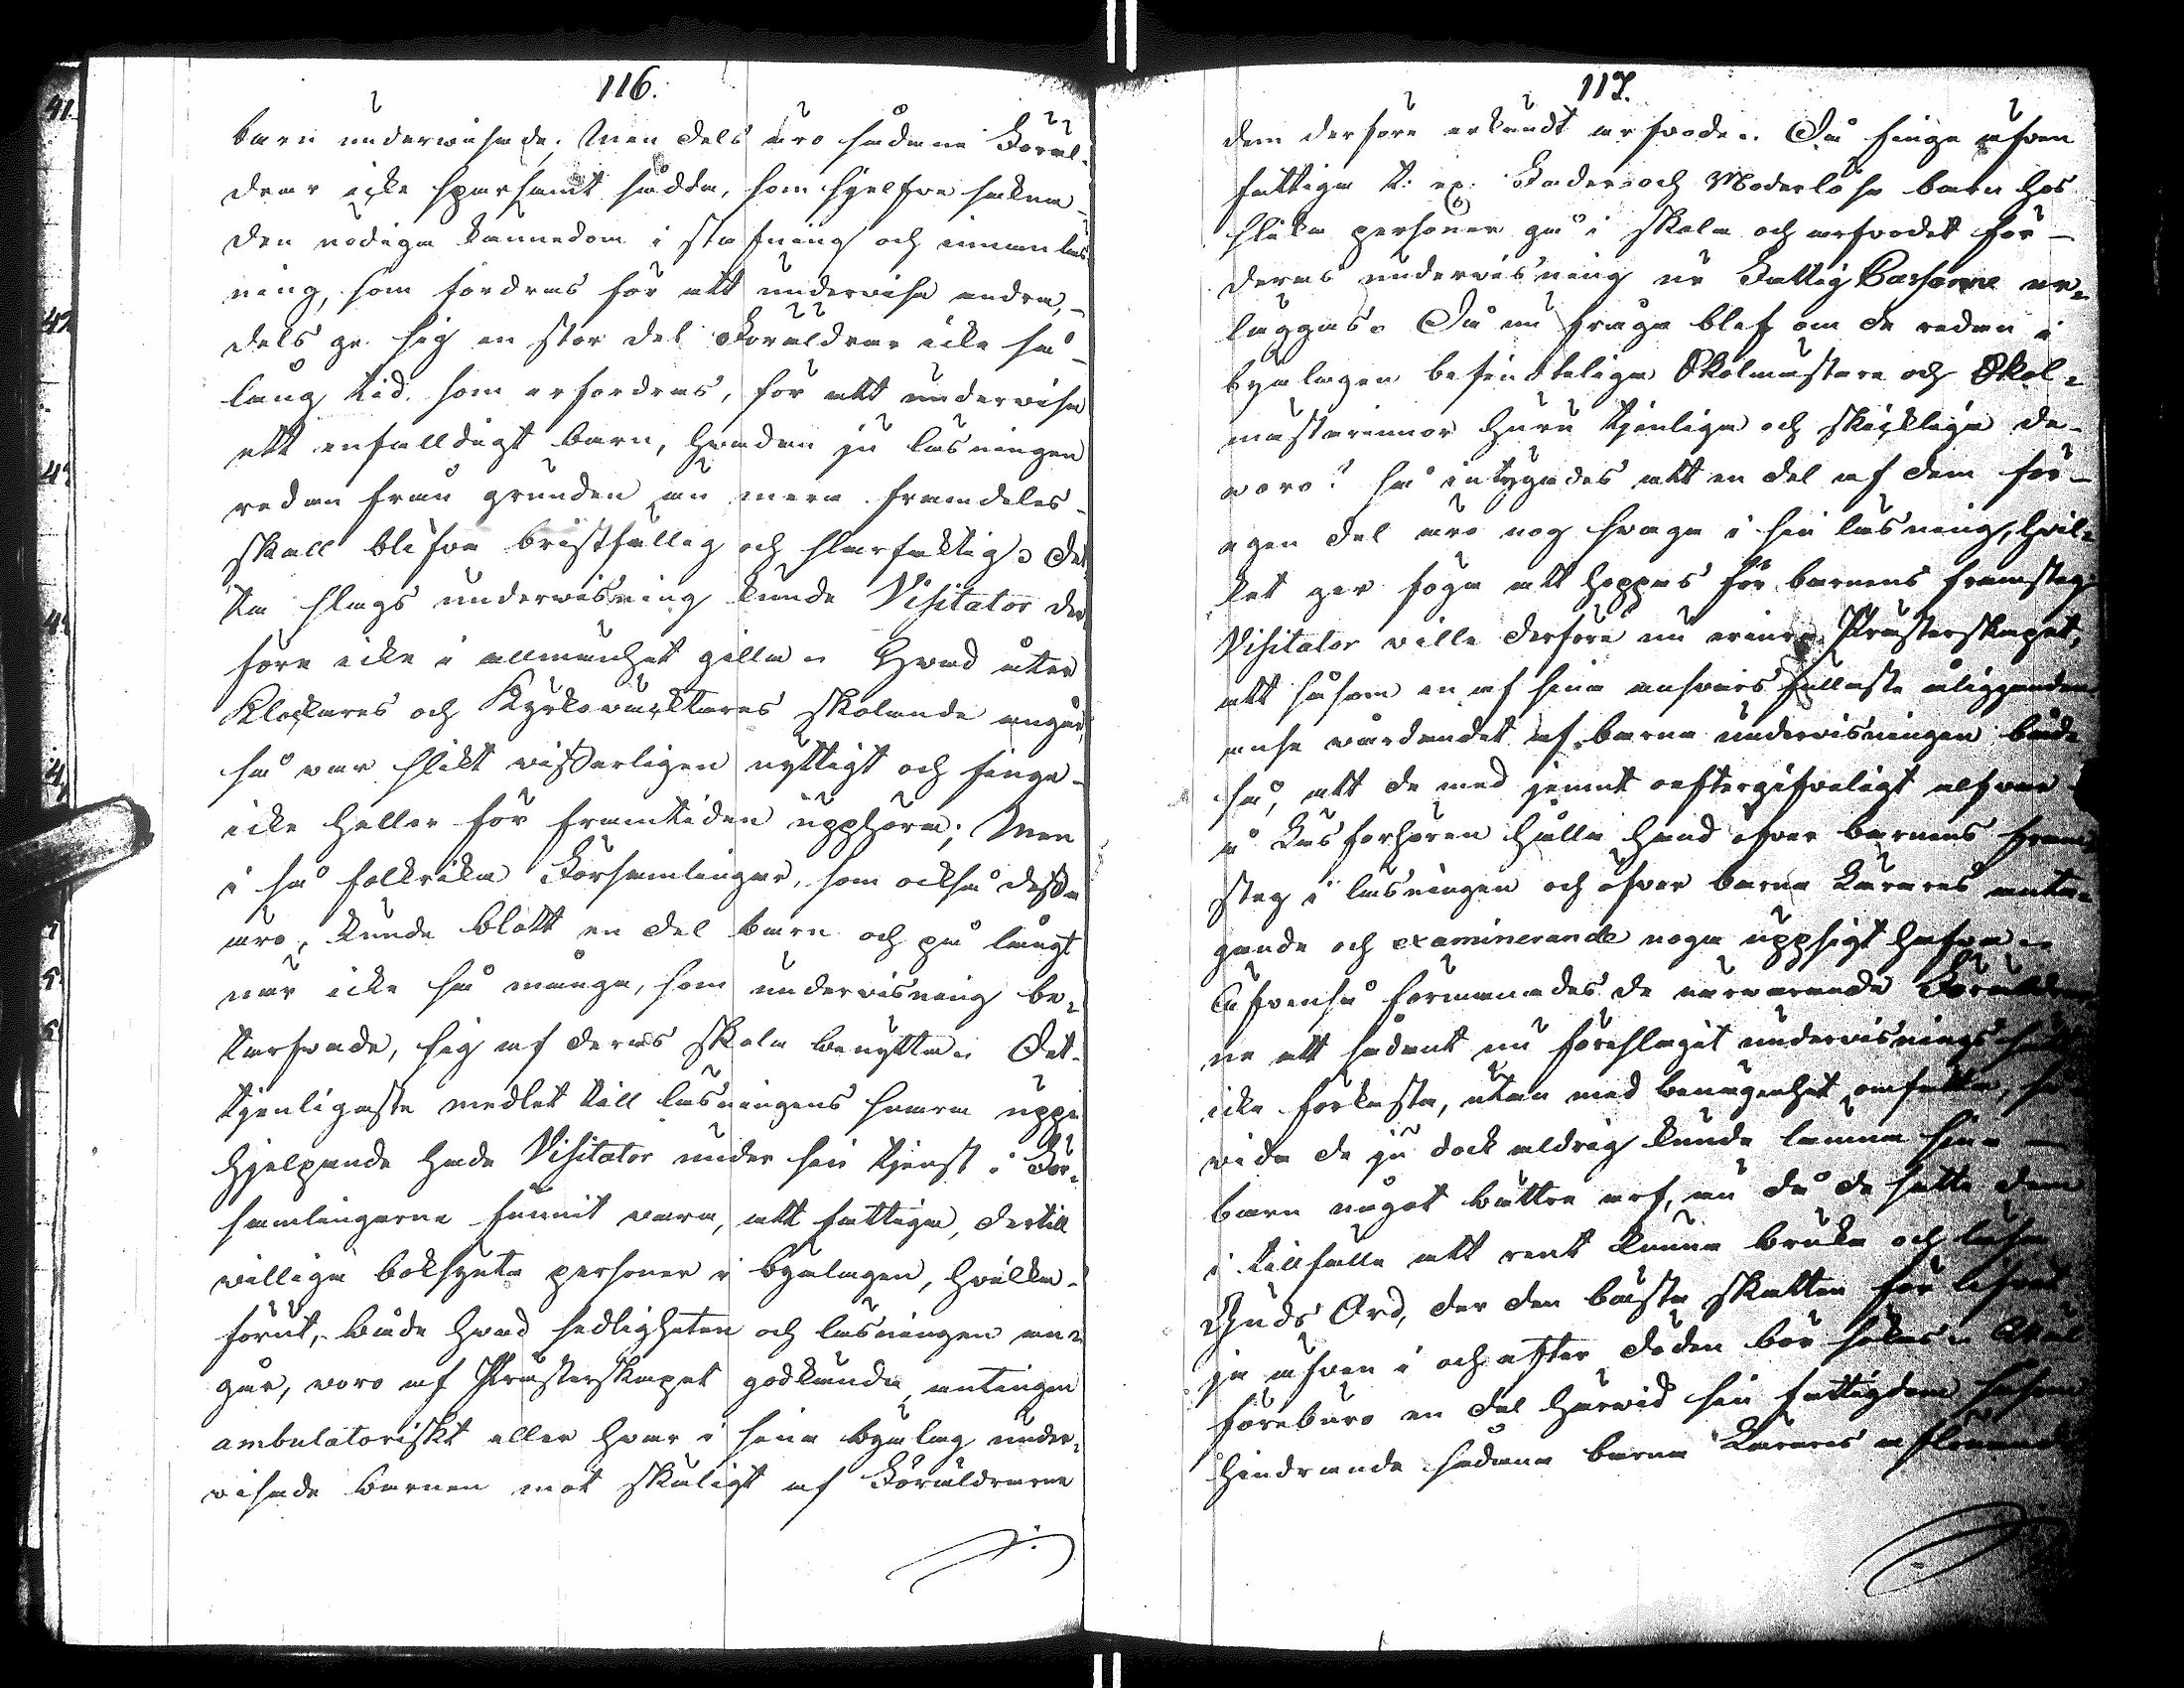 116.
barn underwisade; Men dels äro sådane Föräl-
drar icke sparsamt sådda, som sjelfva sakna
den nödiga kännedom i stafning och innanläs-
ning, som fordras för att undervisa andra,
dels ge sig en stor del Föräldrar icke så
lång tid, som erfordras, för att undervisa
ett enfalldigt barn, hvadan ju läsningen
redan från grunden än mera framdeles
skall blifva bristfällig och slarfaktig. Det-
ta slags undervisning kunde Visitator der-
före icke i allmänhet gilla. Hvad åter
Klockares och Kyrkovacktares skolande angår,
så var slikt visserligen nyttigt och finge
icke heller för framtiden upphöra; Men
i så folkrika Församlingar, som också dessa
äro, kunde blott en del barn och på långt
när icke så många, som undervisning be-
tarfvade, sig af deras skola benytta. Det
tjenligaste medlet till läsningens snara upp-
hjelpande hade Visitator under sin tjenst i För-
samlingarne funnit vara, att fattiga, dertill
villiga boksynta personer i byalagen, hvilka
förut, både hvad sedligheten och läsningen an-
går, voro af Prästerskapet godkända, antingen
ambulatoriskt eller hvar i sina byalag under-
visade barnen mot skäligt af Föräldrarne
117.
dem derföre erkändt arfvode. Då finge äfven
fattiga t: ex: Fader- och Moderlösa barn hos
slika personer gå i skola och arfvodet för
deras undervisning ur FattigCassorne er-
läggas. Då nu fråga blef om de redan i
byalagen befindteliga Skolmästare och Skol-
mästarinnor huru tjenliga och skickliga de
voro? så intygades att en del af dem för
egen del äro nog svaga i sin läsning, hvil-
ket ger föga att hoppas för barnens framsteg.
Visitator ville derföre nu erinra Prästerskapet,
att såsom en af sina ansvars fullaste åligganden
anse vårdandet af barna undervisningen både
så, att de med jemnt oeftergifveligt alfvar
å Läsförhören hålla hand öfver barnens fram-
steg i läsningen och öfver barna Lärares anta-
gande och examinerande noga uppsigt hafva.
Äfvenså förmanades de närvarande Föräldrar-
ne att sådant nu föreslagit undervisnings sätt
icke förkasta, utan med benägenhet omfatta, så
vida de ju dock aldrig kunde lämna sina
barn något bättre arf, än då de satte dem
i tillfälle att rent kunna bruka och läsa
Guds Ord, der den bästa skatten för lifvet
ja äfven i och efter döden bör sökas. Wäl
föreburo en del härvid sin fattigdom såsom
hindrande sådana barna Lärares aflönande